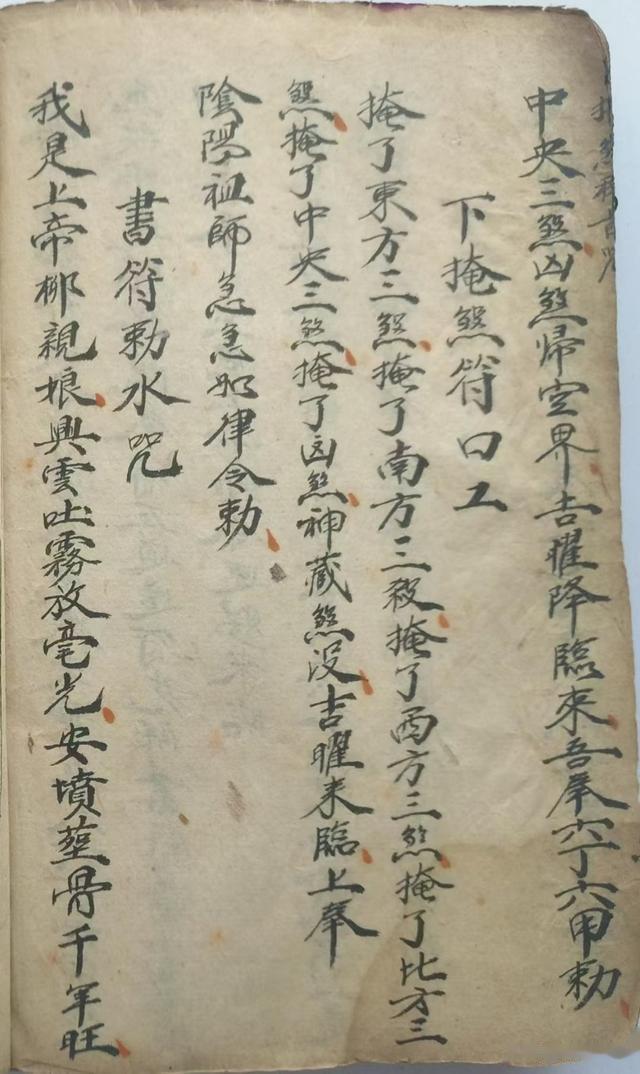 中央三煞凶煞歸空界吉曜降臨來吾奉六丁六甲勅
下掩煞符口工
掩了東方三煞掩了南方三殺掩了西方三煞掩了比方三
煞掩了中央三煞掩了凶煞神藏煞没吉曜来臨上奉
陰陽祖師急急如律令勅
書符勅水咒
我是上帝椰親娘興雲吐霧放毫光安墳塟骨千年旺